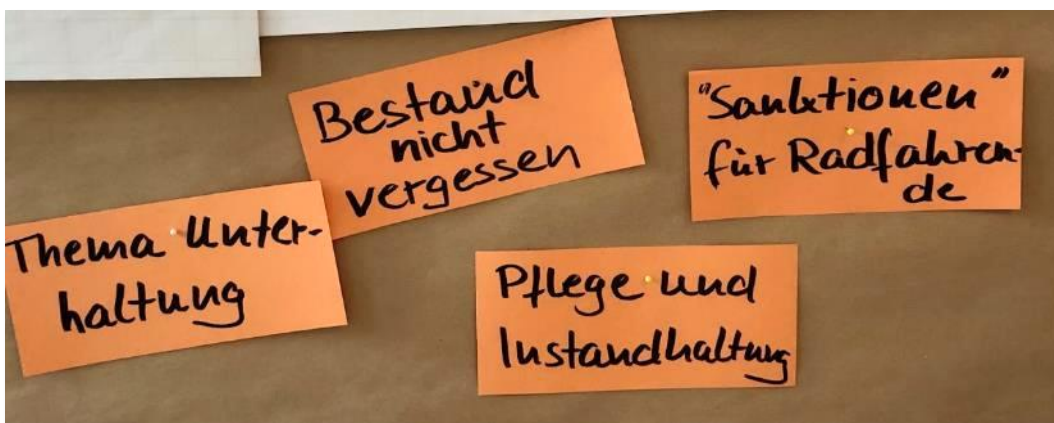 Bestand
nicht
vergessen
"Sanktionen"
für Radfahren-
de
Thema Unter-
haltung
Pflege und
Instandhaltung